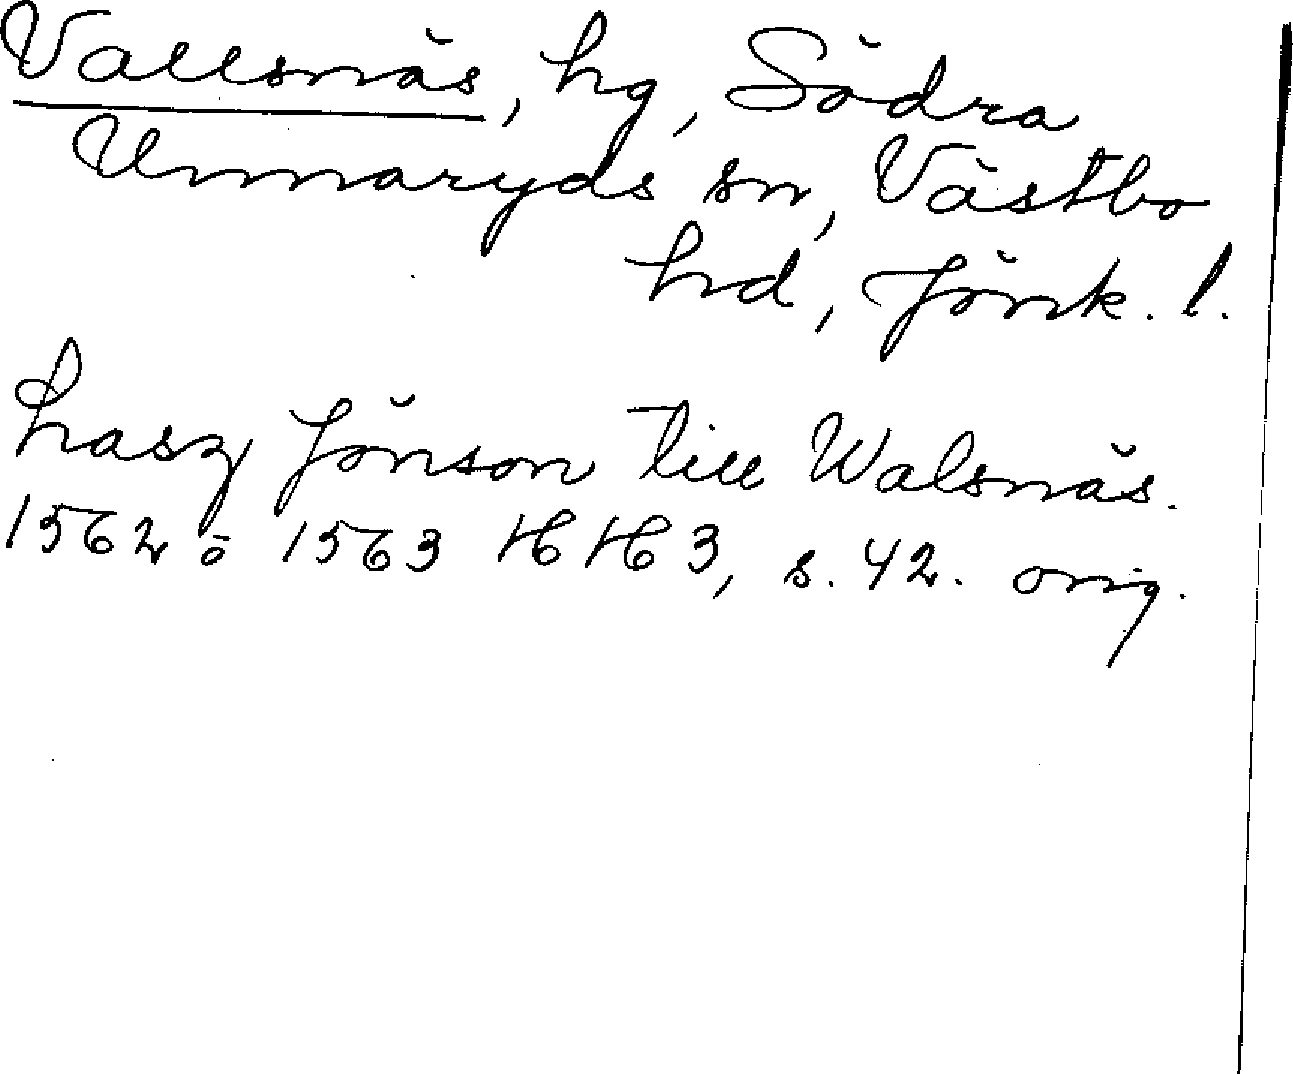 Vallsnäs, hg, Södra
Unnaryds sn, Västbo
hd, Jönk. l.
hasz Jönson till Walsnäs.
1562 o 1563 HH 3, s. 42. orig.